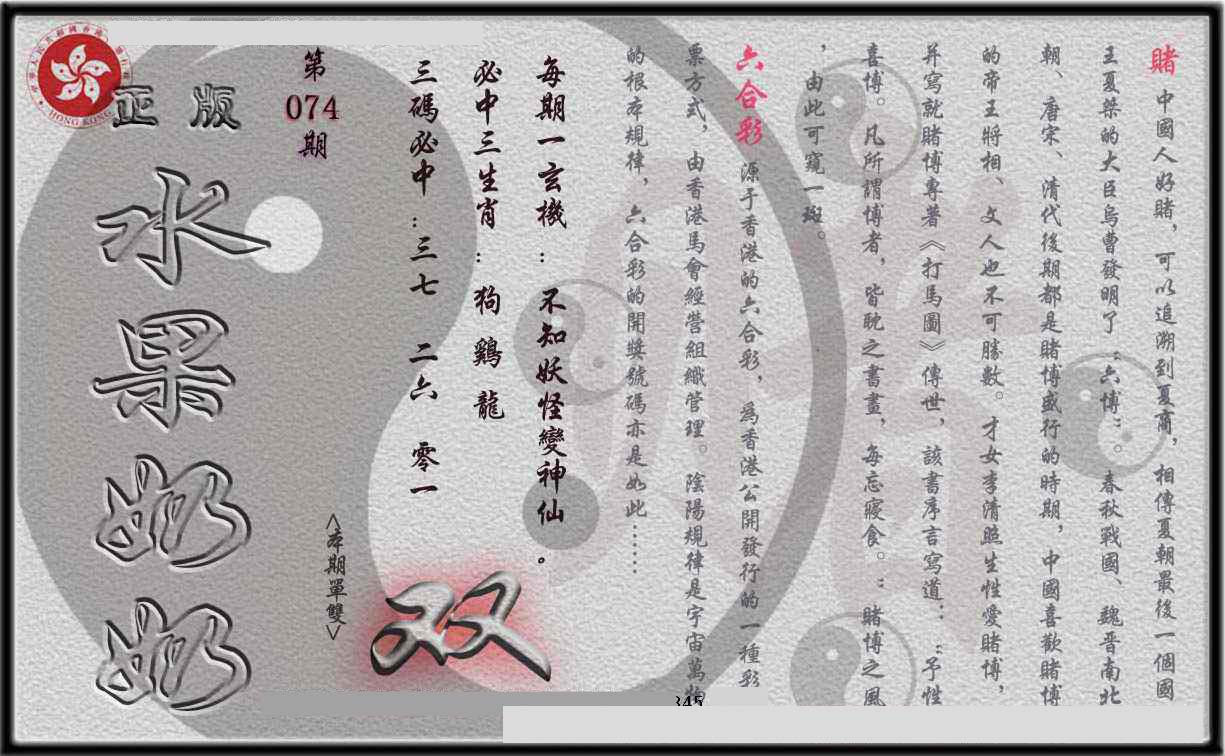 賭 中國人好賭，可以追溯到夏商，相傳夏朝最後一個國
王夏桀的大臣烏曹發明了“六博”。春秋戰國、魏晉南北
朝、唐宋、清代後期都是賭博盛行的時期，中國喜歡賭博
的帝王將相、文人也不可勝數。才女李清照生性愛賭博，
并寫就賭博專著《打馬圖》傳世，該書序言寫道：“予性
喜博。凡所謂博者，皆耽之書畫，每忘寢食。”賭博之風
，由此可窺一斑。
六合彩 源于香港的六合彩，為香港公開發行的一種彩
票方式，由香港馬會經營組織管理。陰陽規律是宇宙萬物
的根本規律，六合彩的開獎號碼亦是如此……
每期一玄機：不知妖怪變神仙。
必中三生肖：狗 鷄 龍
三碼必中：三七 二六 零一
双
<本期單雙>
第
074
期
正版
水果奶奶
HONG KONG
345